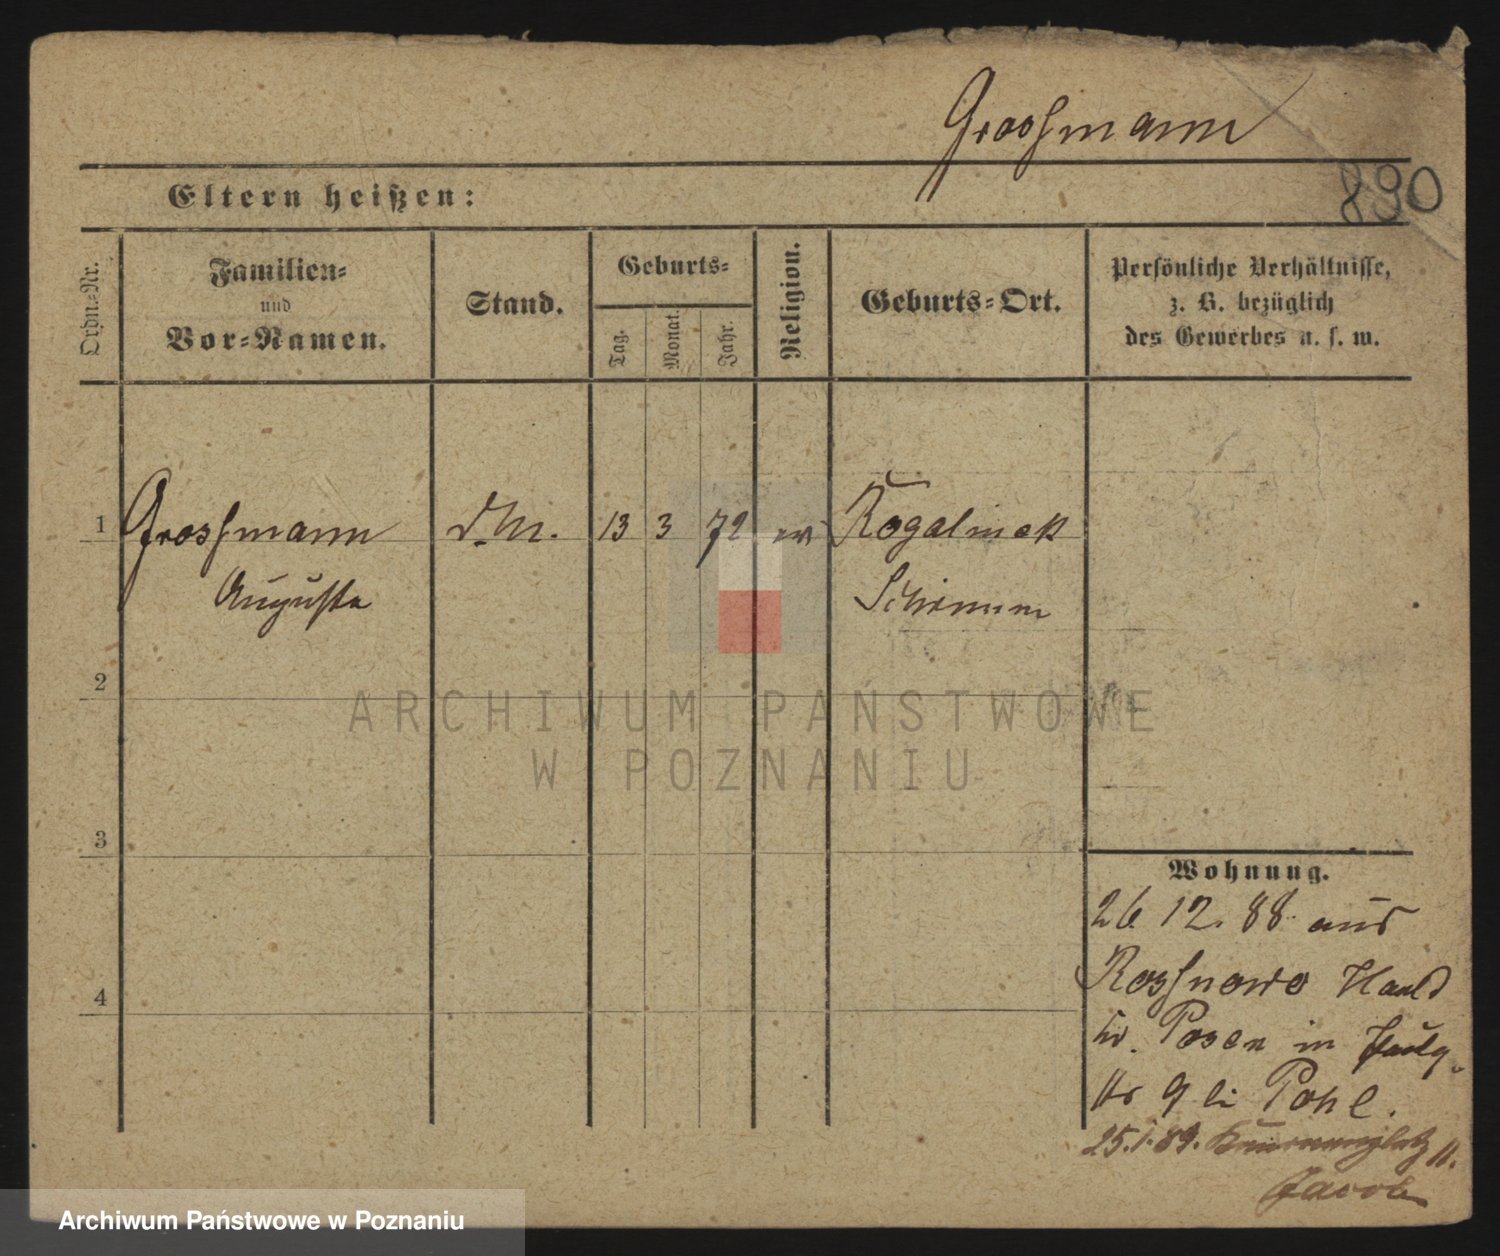 Grossmann
890
Eltern heißen:
Ordn.-Nr.
Familien-
und
Vor-Namen.
Stand.
Geburts-
Tag.
Monat.
Jahr.
Religion.
Geburts-Ort.
Persönliche Verhältnisse,
z. B. bezüglich
des Gewerbes u. s. w.
1 Grossmann d. M. 13 3 72 ev Rogalinek
Auguste Schrimm
2
ARCHIWUM PAŃSTWOWE
W POZNANIU
3
Wohnung.
26 12. 88 aus
Rossnowo
4
Kr. Posen in
Nr 9 bei Pohl.
25.1.89. 11.
Jacob
Archiwum Państwowe w Poznaniu